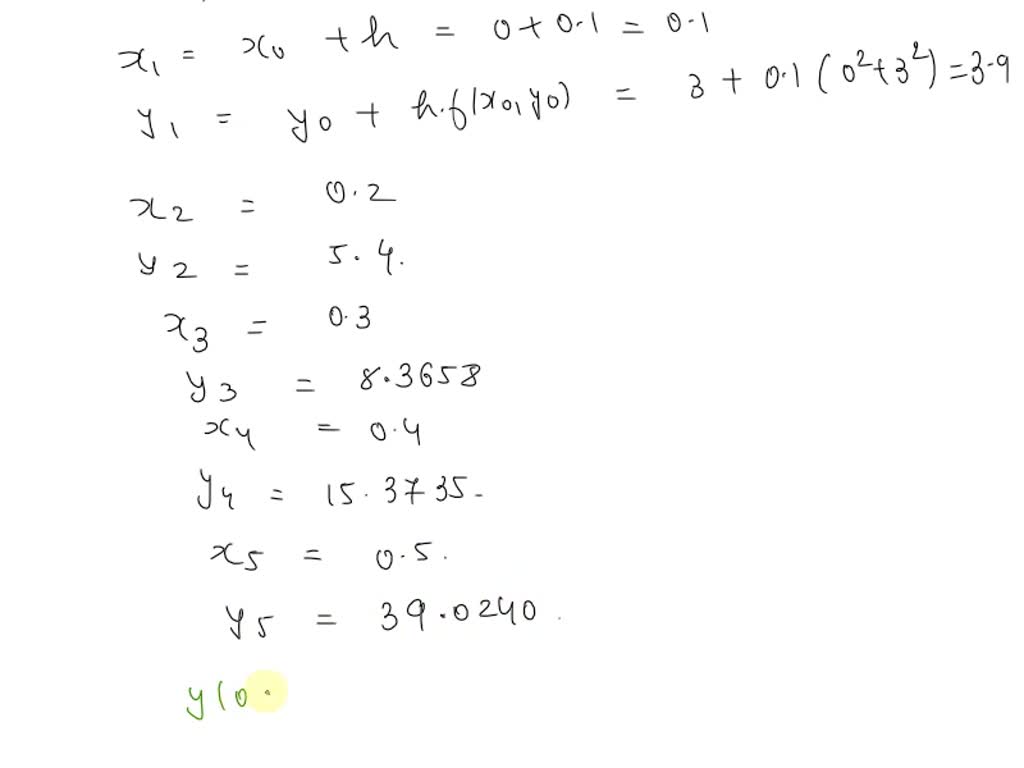 x₁ = x₀ + h = 0 + 0.1 = 0.1
y₁ = y₀ + h.f(x₀,y₀) = 3 + 0.1(0²+3²) = 3.9
x₂ = 0.2
y₂ = 5.4.
x₃ = 0.3
y₃ = 8.3658
x₄ = 0.4
y₄ = 15.3735-
x₅ = 0.5.
y₅ = 39.0240.
y(0.